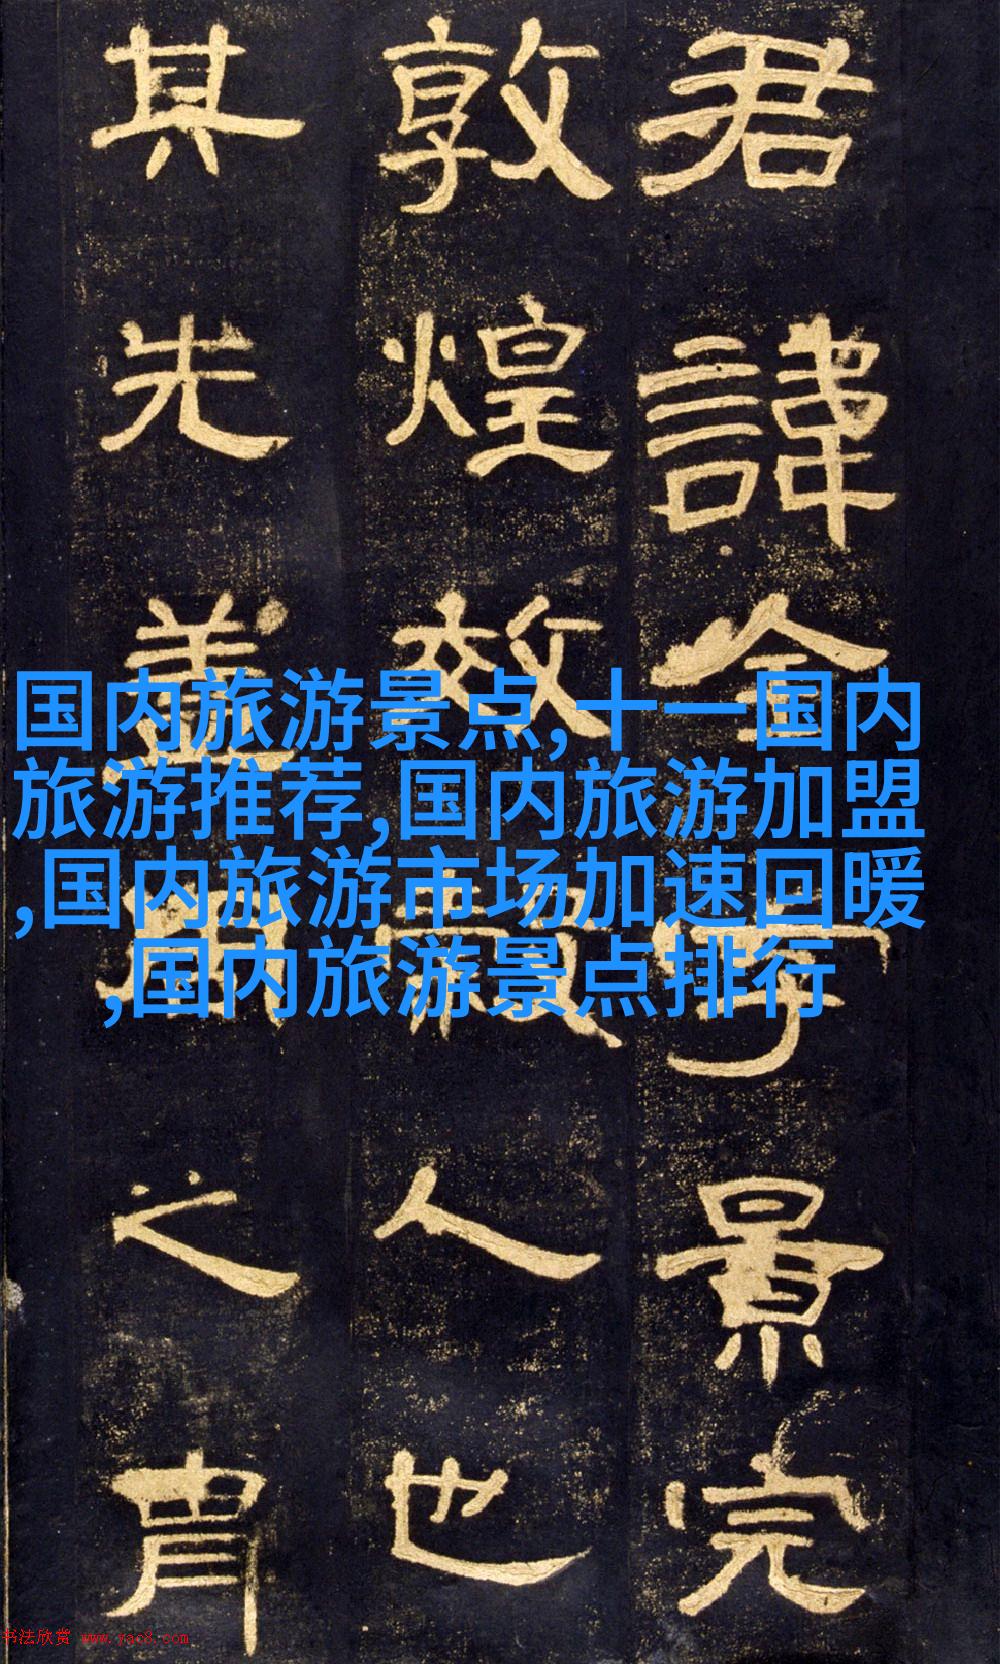 君諱全字景完
敦煌效穀人也
其先蓋周之胄
国内旅游景点,十一国内
旅游推荐,国内旅游加盟
,国内旅游市场加速回暖
,国内旅游景点排行
书法欣赏 www.yac8.com